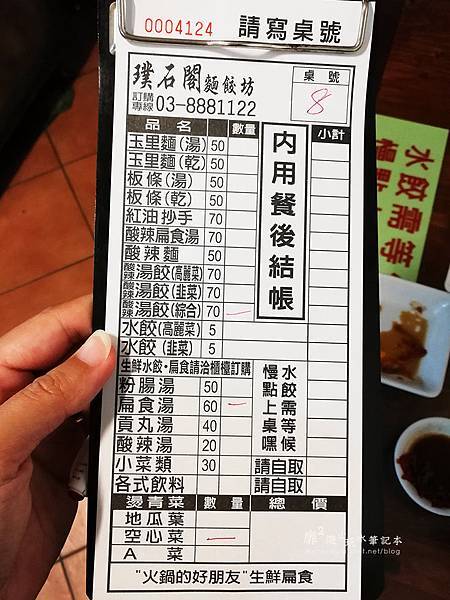 0004124 請寫桌號
璞石閣麵餃坊 桌號
訂購專線 03-8881122 8
品名 數量 小計
玉里麵(湯) 50
玉里麵(乾) 50
板條(湯) 50
板條(乾) 50
紅油抄手 70
酸辣扁食湯 70
酸辣麵 50
酸辣湯餃(高麗菜) 70
酸辣湯餃(韭菜) 70
酸辣湯餃(綜合) 70 一
水餃(高麗菜) 5
水餃(韭菜) 5
內用餐後結帳
生鮮水餃・扁食請洽櫃檯訂購
粉腸湯 50
扁食湯 60 一
貢丸湯 40
酸辣湯 20
小菜類 30 請自取
各式飲料 請自取
水餃需等候
慢點上桌嘿
燙青菜 數量 總價
地瓜葉
空心菜 一
A菜
"火鍋的好朋友"生鮮扁食
水餃需等
慢點
筆記本